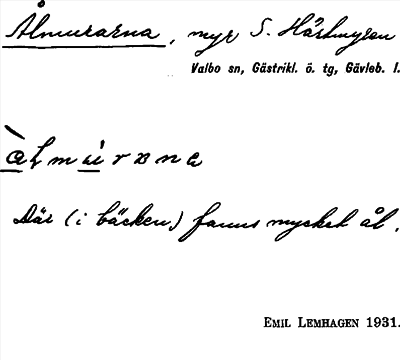 Ålmurarna, myr S. Hästmyran
Valbo sn, Gästrikl. ö. tg, Gävleb. l.
Där (i bäcken) fanns mycket ål.
EMIL LEMHAGEN 1931.